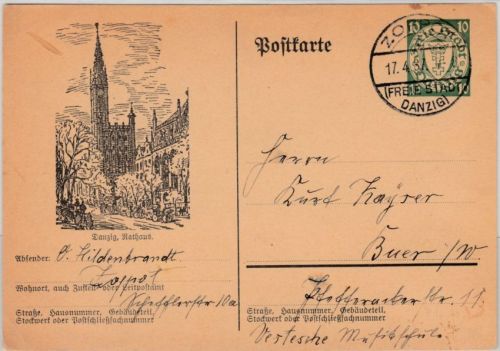 Postkarte
10 10
Freie Stadt
10
ZO
17.4.37
(FREIE STADT
DANZIG)
Danzig, Rathaus.
Absender: O. Hildenbrandt
Zoppot
Wohnort, auch Zustell- oder Leitpostamt
Schefflerstr 10a
Straße, Hausnummer, Gebäudeteil,
Stockwerk oder Postschließfachnummer
Herrn
Kurt Kayser
Buer i/W.
Straße, Hausnummer, Gebäudeteil,
Stockwerk oder Postschließfachnummer